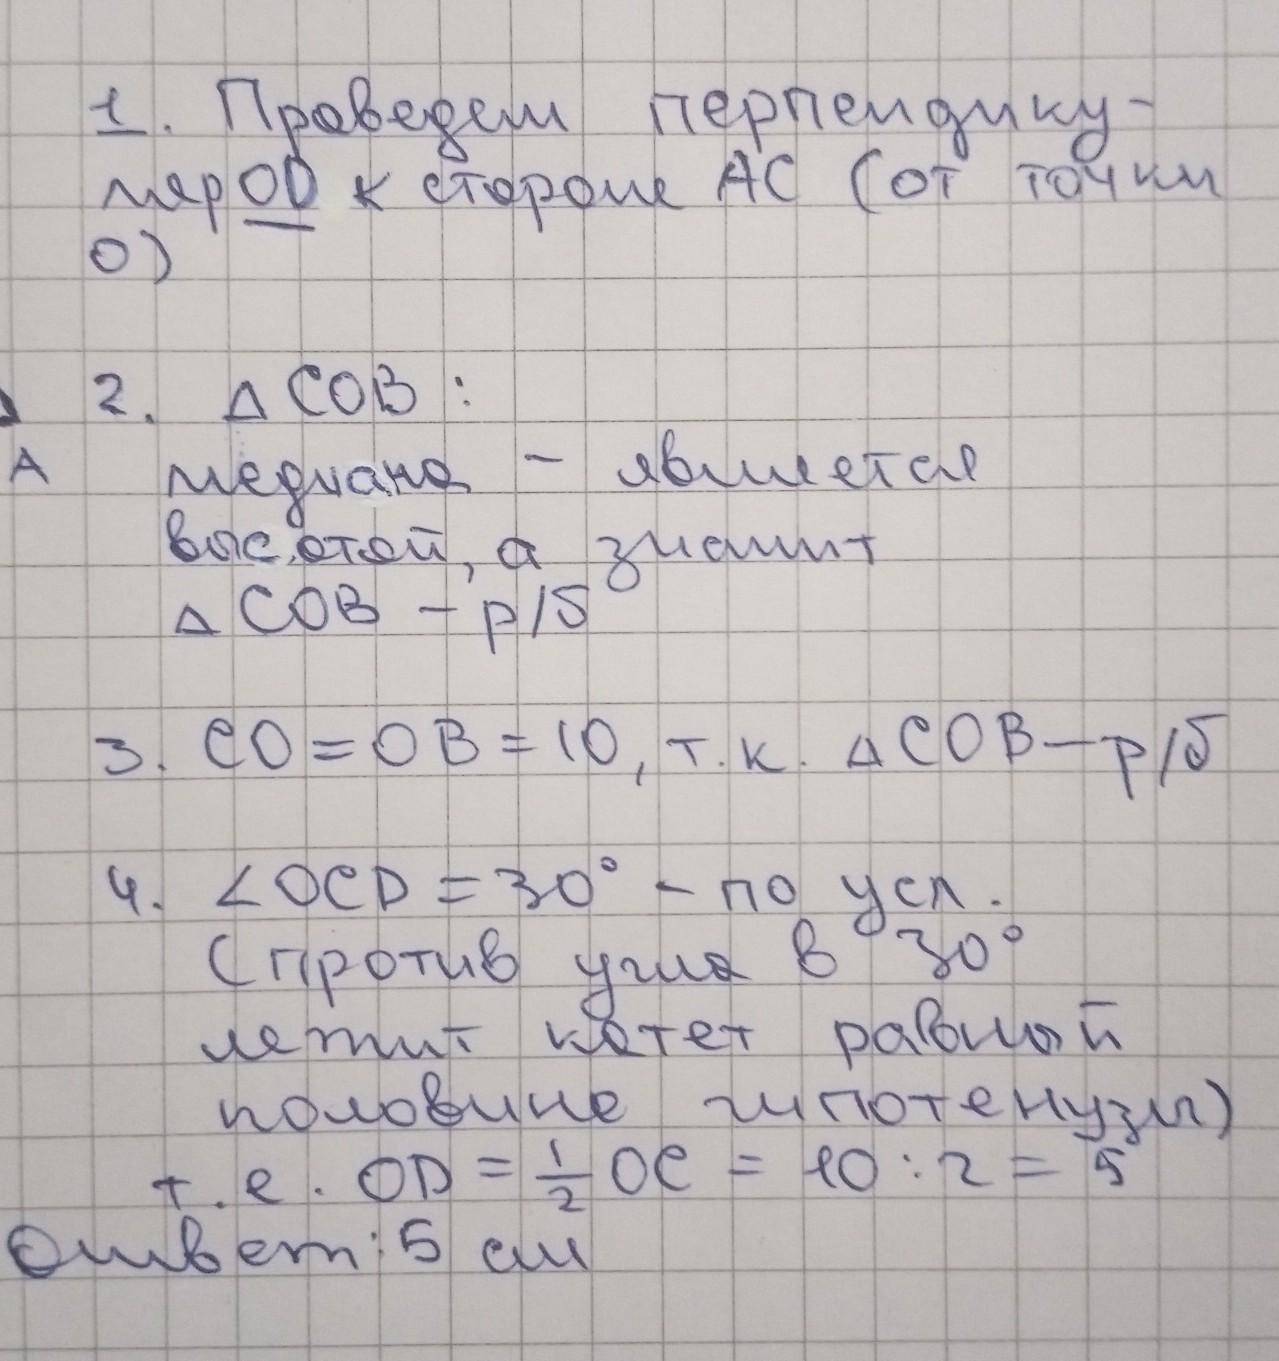 1. Проведем перпендику-
ляр OD к стороне AC (от точки
O)
2. △ COB :
A
медиана - является
высотой, а значит
△ COB - р/б
3. CO = OB = 10, т.к. △ COB - р/б
4. ∠OCD = 30° - по усл.
(против угла в 30°
лежит катет равный
половине гипотенузы)
т.е. OD = 1/2 OC = 10 : 2 = 5
Ответ: 5 см